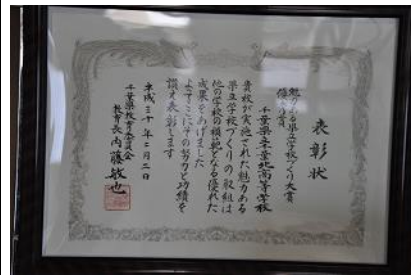 表彰状
魅力ある県立学校づくり大賞
優秀賞
千葉県立千葉北高等学校
貴校が実施された魅力ある
県立学校づくりの取組は
他の学校の模範となる優れた
成果をあげました
よってここにその努力と功績を
讃え表彰します
平成三十年二月二日
千葉県教育委員会
教育長内藤敏也